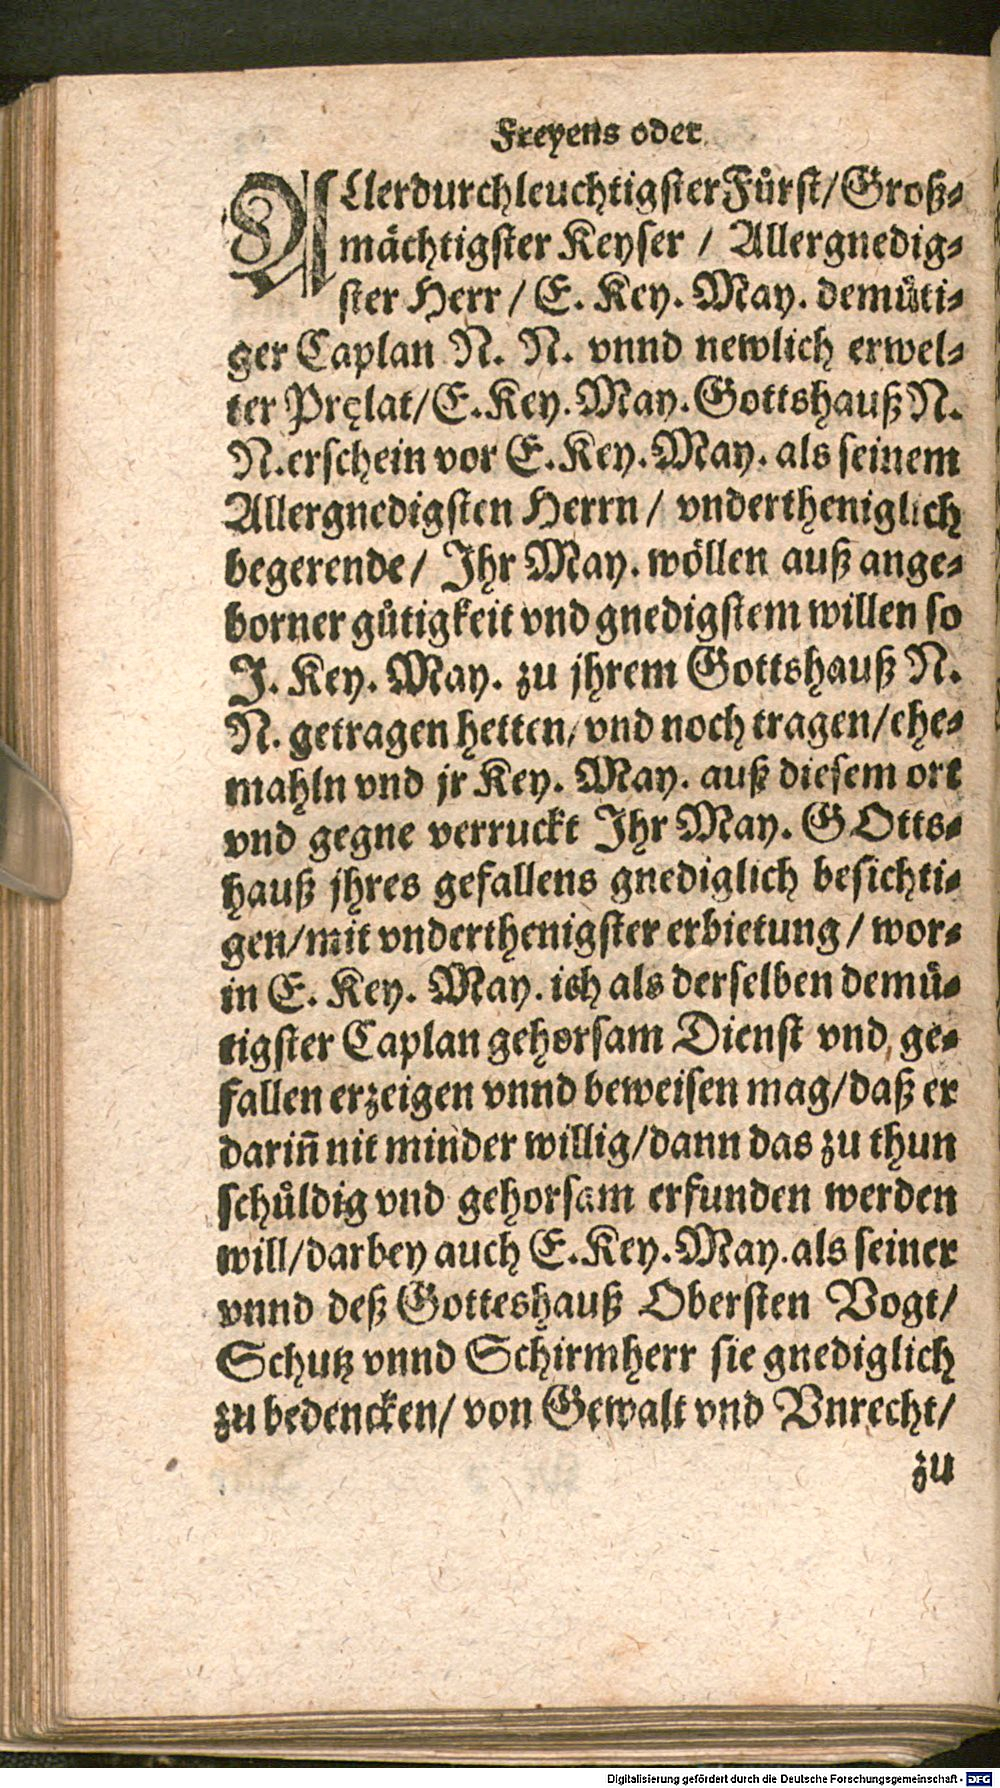 Freyens oder
ALlerdurchleuchtigster Fuͤrst/ Groß-
mächtigster Keyser / Allergnedig-
ster Herr / E. Key. May. demuͤti-
ger Caplan N. N. vnnd newlich erwel-
ter Pręlat/ E. Key. May. Gottshauß N.
N. erschein vor E. Key. May. als seinem
Allergnedigsten Herrn / vndertheniglich
begerende / Ihr May. wöllen auß ange-
borner guͤtigkeit vnd gnedigstem willen so
J. Key. May. zu jhrem Gottshauß N.
N. getragen hetten/ vnd noch tragen/ ehe-
mahln vnd jr Key. May. auß diesem ort
vnd gegne verruckt Ihr May. GOtts-
hauß jhres gefallens gnediglich besichti-
gen/ mit vnderthenigster erbietung / wor-
in E. Key. May. ich als derselben demuͤ-
tigster Caplan gehorsam Dienst vnd ge-
fallen erzeigen vnnd beweisen mag/ daß er
dariñ nit minder willig/ dann das zu thun
schuͤldig vnd gehorsam erfunden werden
will/ darbey auch E. Key. May. als seiner
vnnd deß Gotteshauß Obersten Vogt/
Schutz vnnd Schirmherr sie gnediglich
zu bedencken/ von Gewalt vnd Vnrecht/
zu
Digitalisierung gefördert durch die Deutsche Forschungsgemeinschaft - DFG